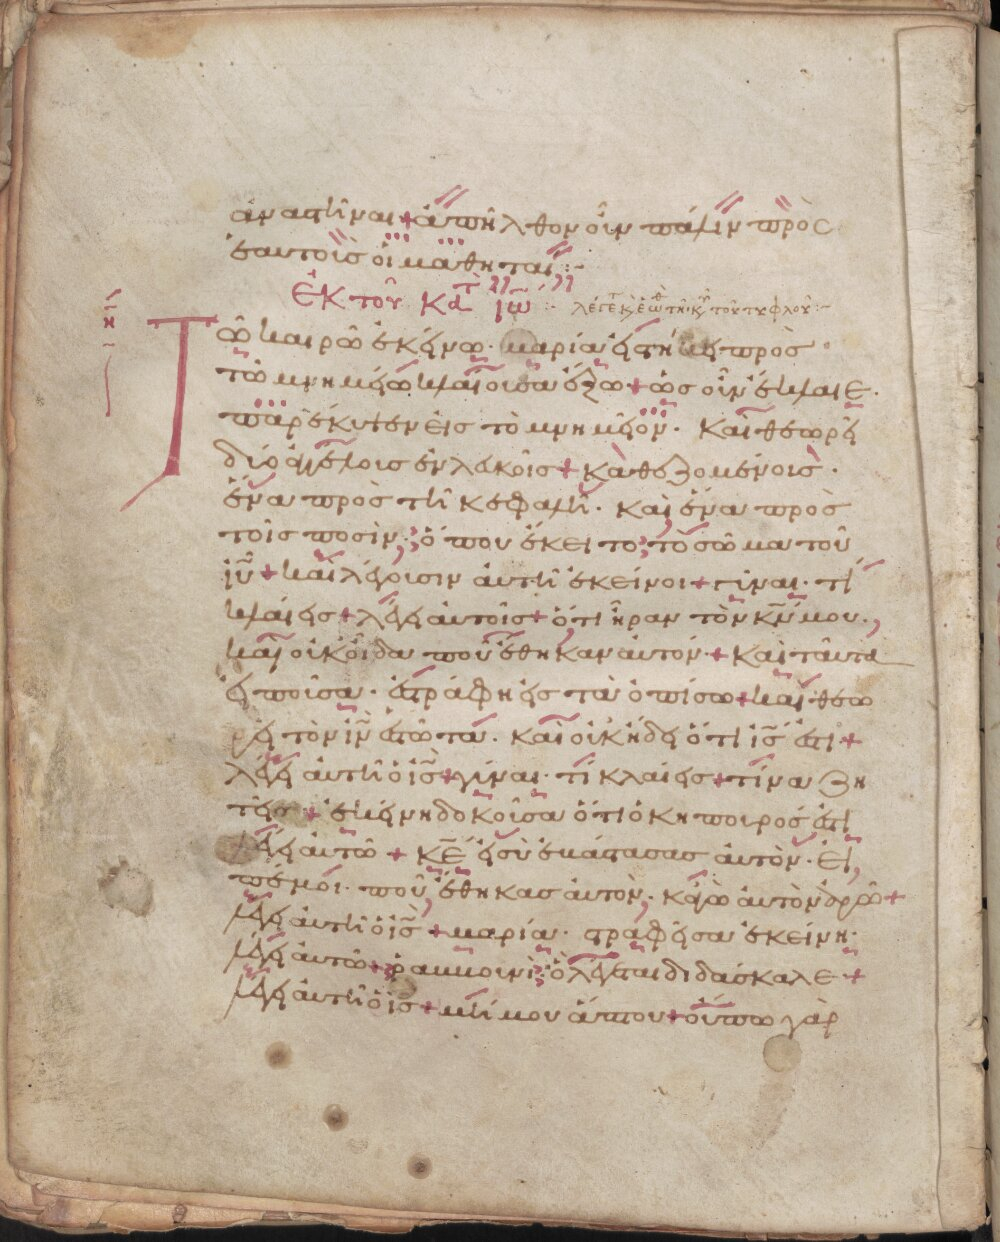 ἀναστῆναι + ἀπῆλθον οὖν πάλιν πρὸς
ἑαυτοὺς οἱ μαθηταί :-
ἘΚ τοῦ Κατ Ἰω
η
Τῶ καιρῶ ἐκείνω · μαρία εἱστήκει πρὸς
τῶ μνημείω κλαίουσα ἔξω + ὡς οὖν ἔκλαιε ·
παρέκυψεν εἰς τὸ μνημεῖον · Καὶ θεωρεῖ
δύο ἀγγέλους ἐν λευκοῖς + καθεζομένους ·
ἕνα πρὸς τῆ κεφαλῆ · καὶ ἕνα πρὸς
τοῖς ποσὶν · ὅπου ἔκειτο τὸ σῶμα τοῦ
ἰῦ + καὶ λέγουσιν αὐτῆ ἐκεῖνοι + γύναι · τί
κλαίεις + λέγει αὐτοῖς + ὅτι ἦραν τὸν κν μου ·
καὶ οὐκ οἶδα ποῦ ἔθηκαν αὐτόν + Καὶ ταῦτα
εἰποῦσα · ἐστράφη εἰς τὰ ὀπίσω + καὶ θεω
ρεῖ τὸν ἰν ἑστῶτα · καὶ οὐκ ἤδει ὅτι ἰς ἐστι +
λέγει αὐτῆ ὁ ἰς + γύναι · τί κλαίεις + τίνα ζη
τεῖς + ἐκείνη δοκοῦσα ὅτι ὁ κηπουρός ἐστι
λέγει αὐτῶ + κε εἰ σὺ ἐβάστασας αὐτὸν · εἰ
πέ μοι · ποῦ ἔθηκας αὐτὸν · κἀγὼ αὐτὸν ἀρῶ +
λέγει αὐτῆ ὁ ἰς + μαρία · στραφεῖσα ἐκείνη ·
λέγει αὐτῶ + ραββουνὶ · ὃ λέγεται διδάσκαλε +
λέγει αὐτῆ ὁ ἰς + μή μου ἅπτου + οὔπω γὰρ